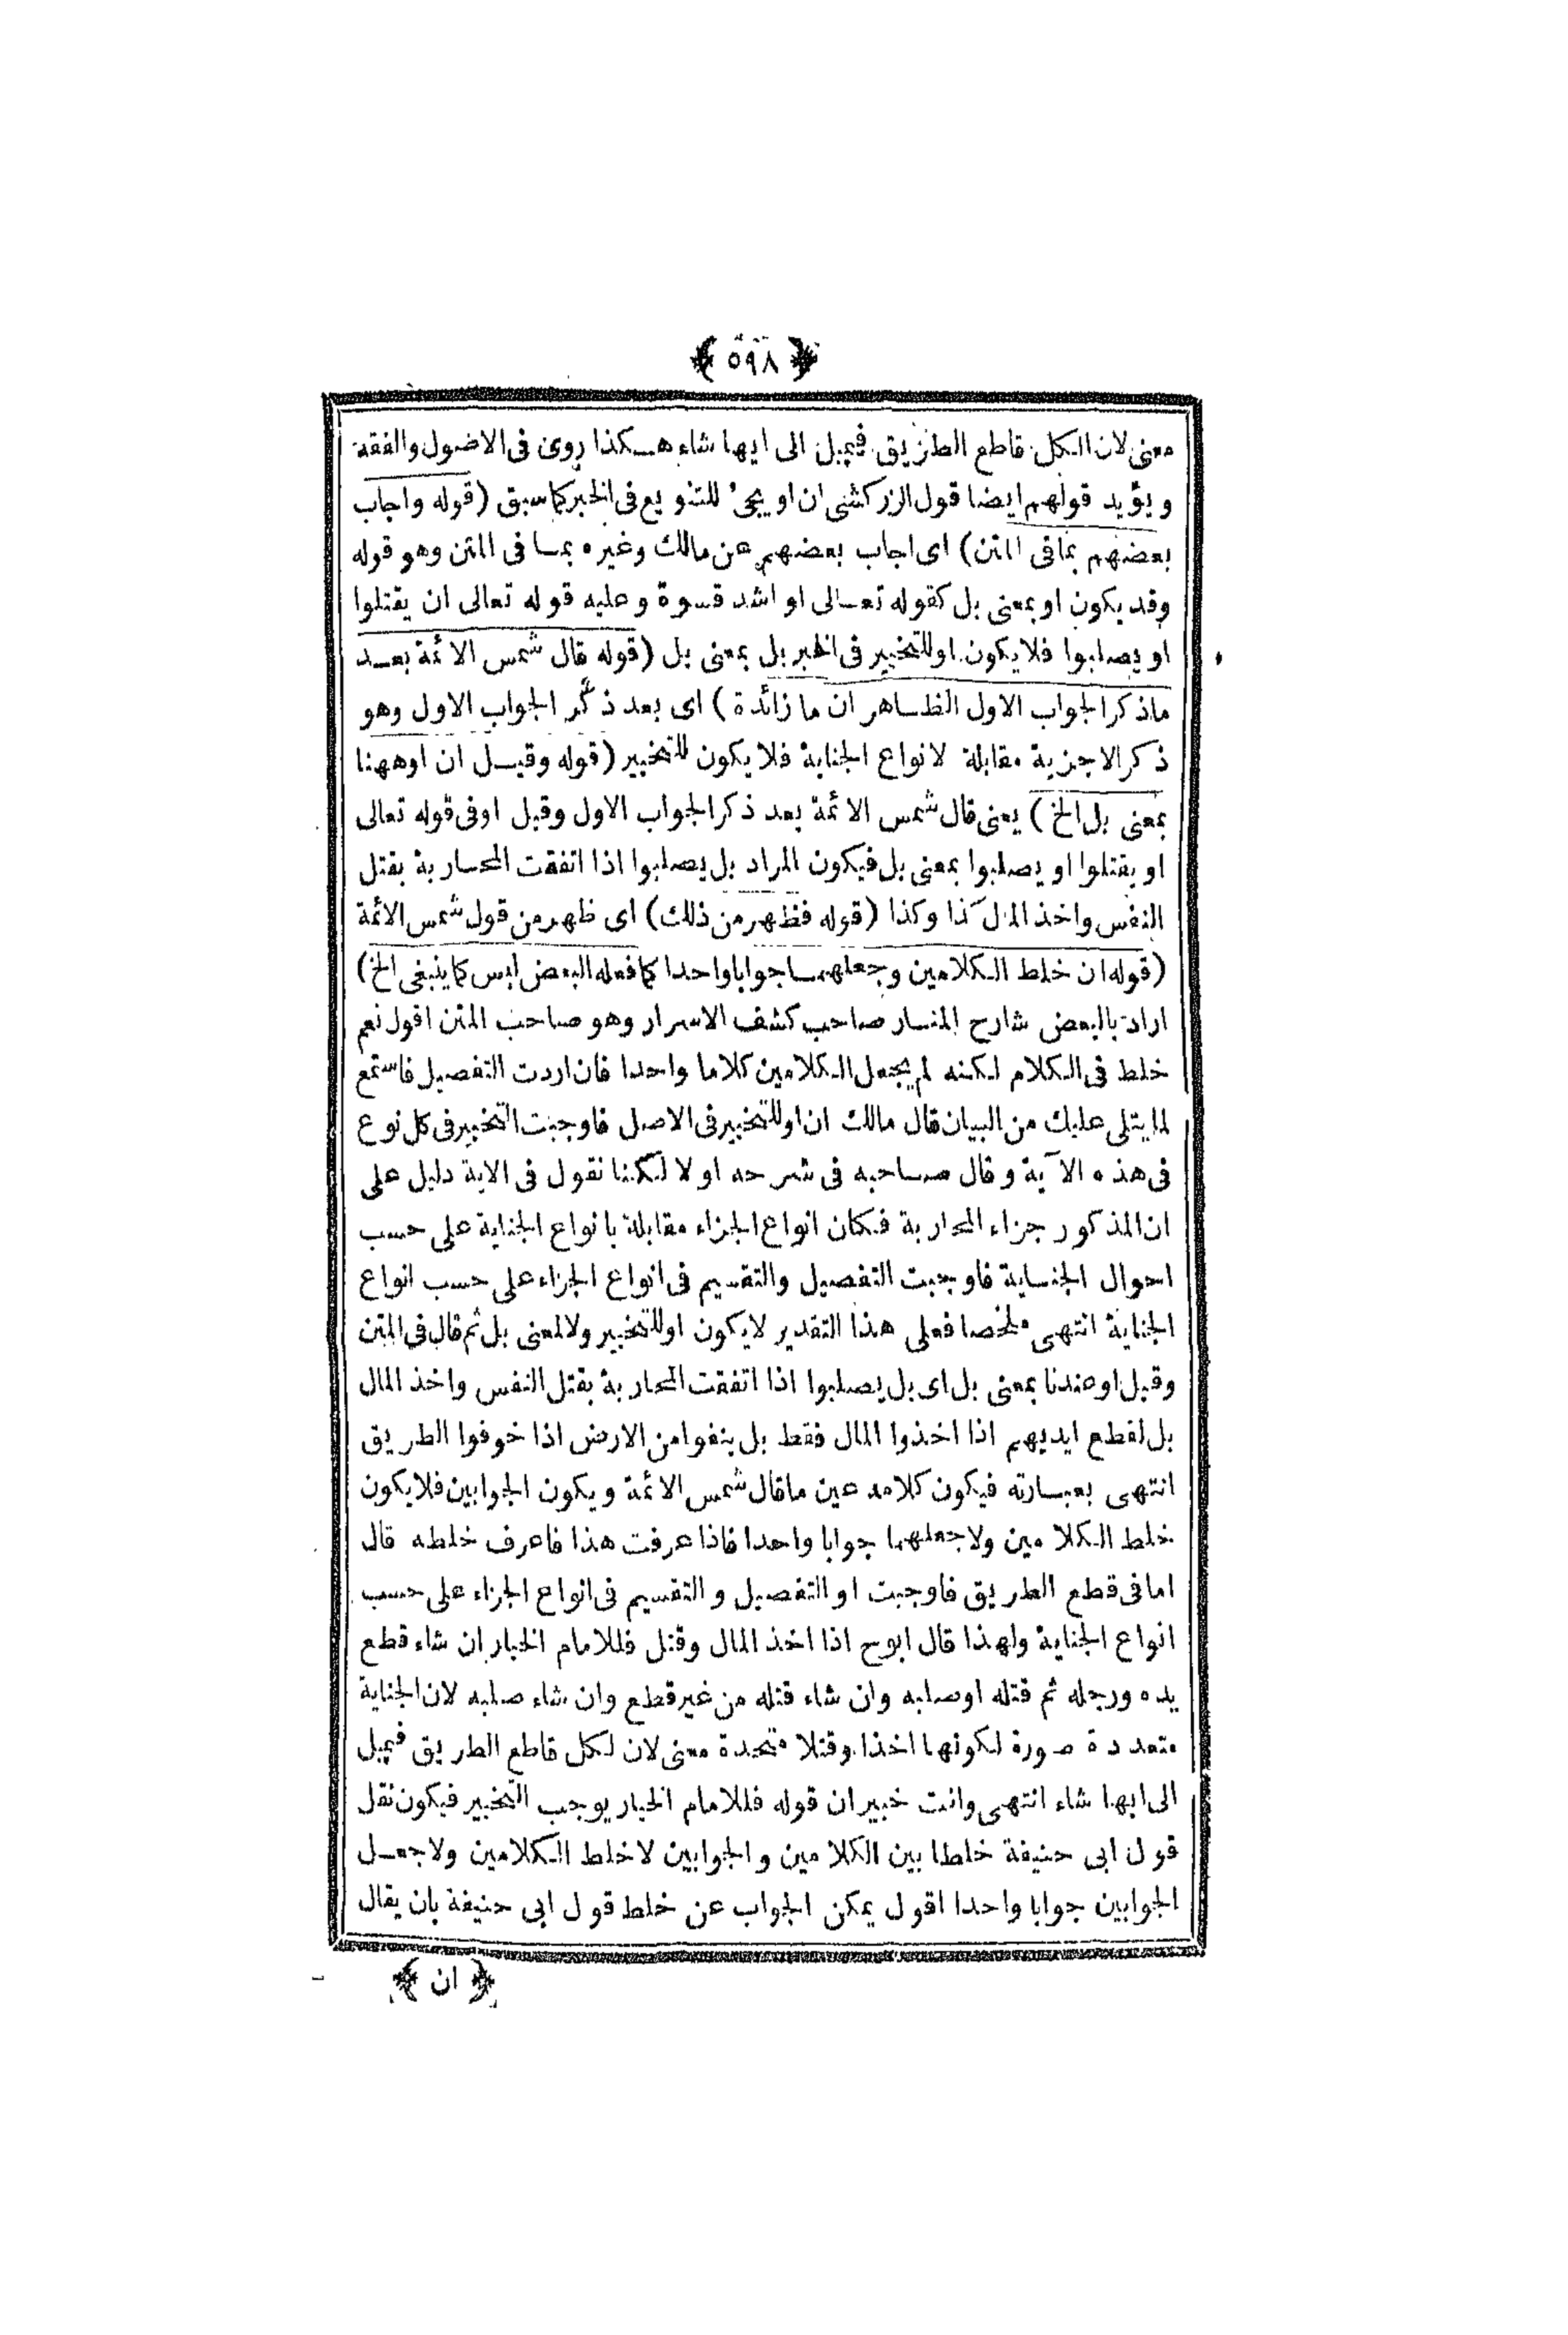 ﴿ ٥٩٨ ﴾
معنى لان الكل قاطع الطريق فيميل الى ايها شاء هكذا روى فى الاصول والفقه
و يؤيد قولهم ايضا قول الزركشى ان او يجئ للتنويع فى الخبر كما سبق (قوله واجاب
بعضهم بما فى المتن) اى اجاب بعضهم عن مالك وغيره بما فى المتن وهو قوله
وقد يكون او بمعنى بل كقوله تعالى او اشد قسوة وعليه قوله تعالى ان يقتلوا
او يصلبوا فلا يكون او للتخيير فى الخبر بل بمعنى بل (قوله قال شمس الائمة بعد
ما ذكر الجواب الاول الظاهر ان ما زائدة) اى بعد ذكر الجواب الاول وهو
ذكر الاجزية مقابلة لانواع الجناية فلا يكون للتخيير (قوله وقيل ان او ههنا
بمعنى بل الخ) يعنى قال شمس الائمة بعد ذكر الجواب الاول وقيل او فى قوله تعالى
او يقتلوا او يصلبوا بمعنى بل فيكون المراد بل يصلبوا اذا اتفقت المحاربة بقتل
النفس واخذ المال كذا وكذا (قوله فظهر من ذلك) اى ظهر من قول شمس الائمة
(قوله ان خلط الكلامين وجعلهما جوابا واحدا كما فعله البعض ليس كما ينبغى الخ)
اراد بالبعض شارح المنار صاحب كشف الاسرار وهو صاحب المتن اقول نعم
خلط فى الكلام لكنه لم يجعل الكلامين كلاما واحدا فان اردت التفصيل فاستمع
لما يتلى عليك من البيان قال مالك ان او للتخيير فى الاصل فاوجبت التخيير فى كل نوع
فى هذه الآية وقال صاحبه فى شرحه اولا لكننا نقول فى الاية دليل على
ان المذكور جزاء المحاربة فكان انواع الجزاء مقابلة بانواع الجناية على حسب
احوال الجناية فاوجبت التفصيل والتقسيم فى انواع الجزاء على حسب انواع
الجناية انتهى ملخصا فعلى هذا التقدير لا يكون او للتخيير ولا لمعنى بل ثم قال فى المتن
وقيل او عندنا بمعنى بل اى بل يصلبوا اذا اتفقت المحاربة بقتل النفس واخذ المال
بل لقطع ايديهم اذا اخذوا المال فقط بل ينفوا من الارض اذا خوفوا الطريق
انتهى بعبارته فيكون كلامه عين ما قال شمس الائمة ويكون الجوابين فلا يكون
خلط الكلامين ولا جعلهما جوابا واحدا فاذا عرفت هذا فاعرف خلطه قال
اما فى قطع الطريق فاوجبت او التفصيل والتقسيم فى انواع الجزاء على حسب
انواع الجناية ولهذا قال ابو ح اذا اخذ المال وقتل فللامام الخيار ان شاء قطع
يده ورجله ثم قتله او صلبه وان شاء قتله من غير قطع وان شاء صلبه لان الجناية
متعددة صورة لكونها اخذا وقتلا متحدة معنى لان لكل قاطع الطريق فيميل
الى ايها شاء انتهى وانت خبير ان قوله فللامام الخيار يوجب التخيير فيكون نقل
قول ابى حنيفة خلطا بين الكلامين والجوابين لا خلط الكلامين ولا جعل
الجوابين جوابا واحدا اقول يمكن الجواب عن خلط قول ابى حنيفة بان يقال
﴿ ان ﴾